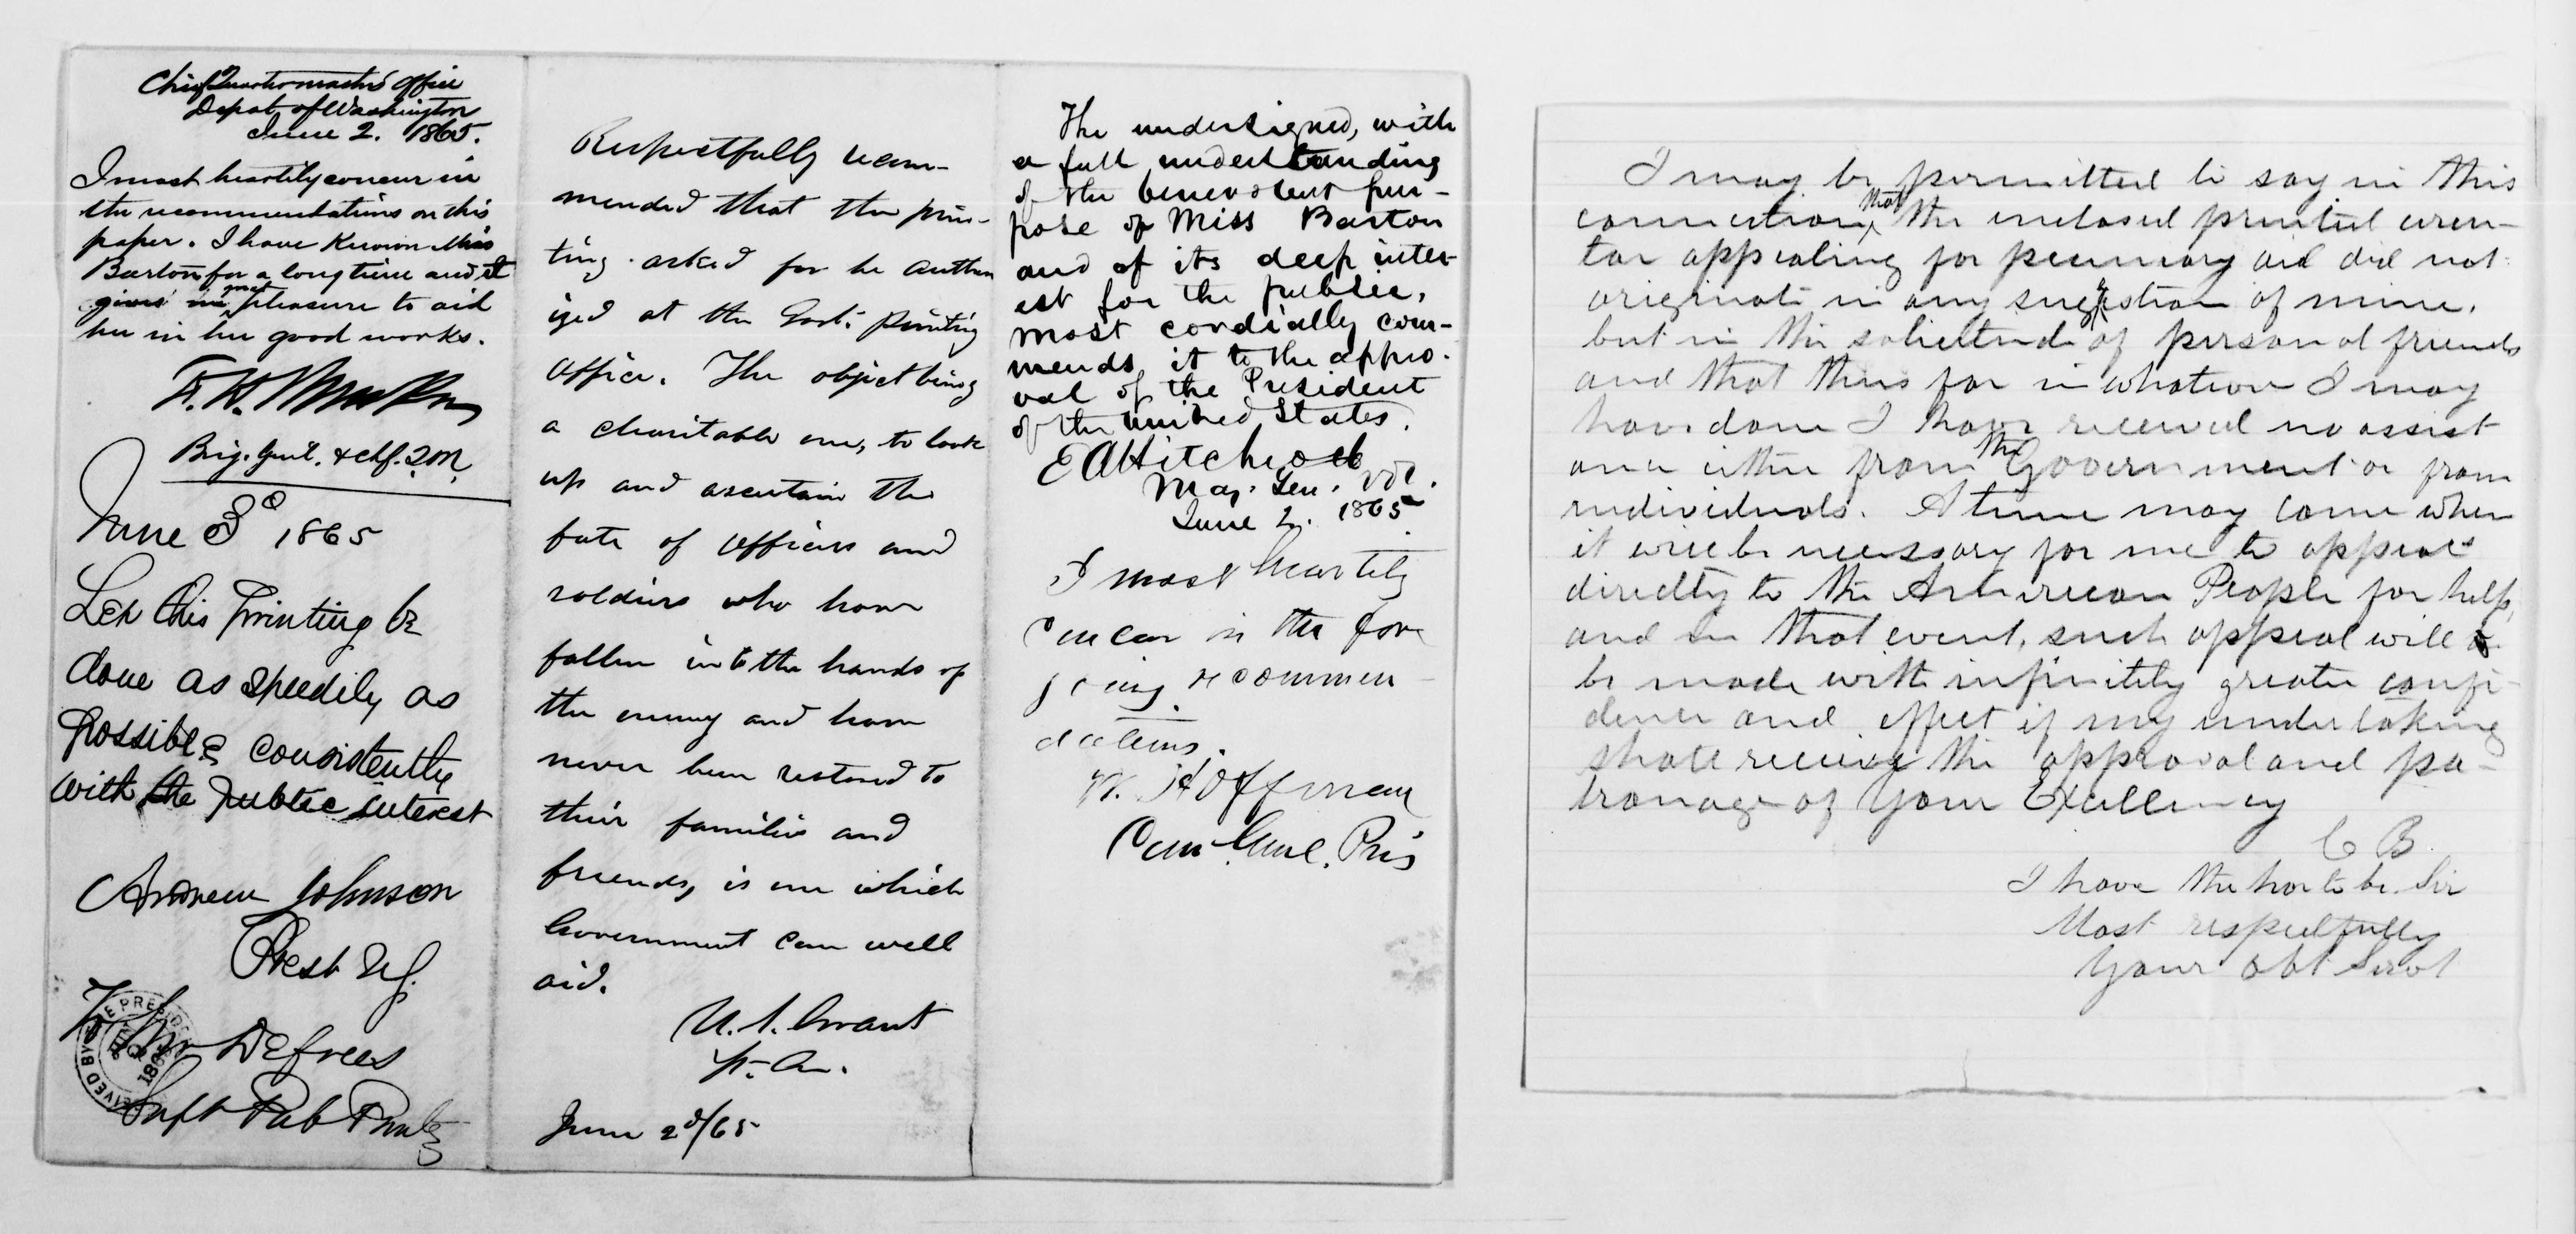 Chief Quartermaster's Office
Depot of Washington
June 2. 1865.
I most heartily concur in
the recommendations on this
paper. I have known Miss
Barton for a long time and it
gives me great pleasure to aid
her in her good works.
Brig. Genl. & Chf. Q.M.
June 3d 1865
Let this Printing be
done as speedily as
possible & consistently
with the public interest
Andrew Johnson
Prest U.S.
DeFrees
Supt Pub Printg
RECEIVED BY THE PRESIDENT
Respectfully recom-
mended that the prin-
ting asked for be author
ized at the Govt. Printing
Office. The object being
a charitable one, to look
up and ascertain the
fate of officers and
soldiers who have
fallen into the hands of
the enemy and have
never been restored to
their families and
friends, is one which
Government can well
aid.
U.S. Grant
June 2d/65
The undersigned, with
a full understanding
of the benevolent pur-
pose of Miss Barton
and of its deep inter-
est for the public,
most cordially com-
mends it to the appro-
val of the President
of the United States.
E A Hitchcock
Maj. Gen. Vol.
June 2. 1865
I most heartily
concur in the fore
going recommen-
dations.
W. Hoffman
Com Genl. Pris
I may be permitted to say in this
connection, that the inclosed printed circu-
lar appealing for pecuniary aid did not
originate in any suggestion of mine,
but in the solicitude of personal friends
and that thus far in whatever I may
have done I have received no assist
ance either from the Government or from
individuals. A time may come when
it will be necessary for me to appeal
directly to the American People for help,
and in that event, such appeal will
be made with infinitely greater confi-
dence and effect if my undertaking
shall receive the approval and pa-
tronage of Your Excellency
C B.
I have the hor to be. Sir
Most respectfully
Your obt Servt